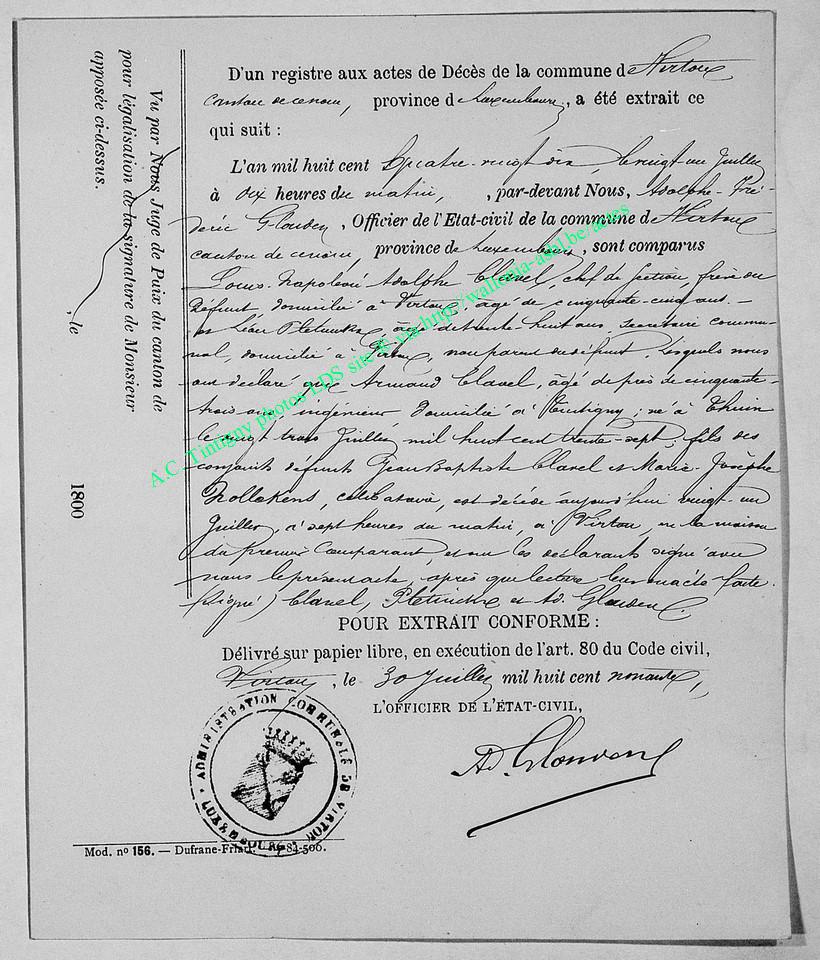 D'un registre aux actes de Décès de la commune de Virton
canton de ce nom, province de Luxembourg, a été extrait ce
qui suit :
L'an mil huit cent quatre-vingt dix, le vingt un Juillet
à dix heures du matin, , par-devant Nous, Adolphe-Fré-
deric Glouden, Officier de l'Etat-civil de la commune de Virton
canton de ce nom, province de Luxembourg, sont comparus
Louis-Napoleon Adolphe Clavel, chef de section, frère du
défunt, domicilié à Virton, âgé de cinquante-cinq ans. —
et Léon Pletinckx, âgé de trente huit ans, secrétaire commu-
nal, domicilié à Virton, non parent du défunt, lesquels nous
ont déclaré que Armand Clavel, âgé de près de cinquante-
trois ans, ingénieur domicilié à Tintigny ; né à Thuin
le vingt trois Juillet mil huit cent trente-sept ; fils des
conjoints défunts Jean Baptiste Clavel et Marie-Josèphe
Nollekens, célibataire, est décédé aujourd'hui vingt-un
Juillet, à sept heures du matin, à Virton, en la maison
du premier comparant, et ont les déclarants signé avec
nous le présent acte, après que lecture leur en a été faite.
(signé) Clavel, Pletinckx et Ad. Glouden.
POUR EXTRAIT CONFORME :
Délivré sur papier libre, en exécution de l'art. 80 du Code civil,
Virton, le 30 Juillet mil huit cent nonante,
L'OFFICIER DE L'ÉTAT-CIVIL,
Ad. Glouden
ADMINISTRATION COMMUNALE DE VIRTON
LUXEMBOURG
Mod. n° 156. — Dufrane-Friart. 84-500.
Vu par Nous Juge de Paix du canton de
pour légalisation de la signature de Monsieur
apposée ci-dessus.
, le 1800
A.C. Tintigny photos LDS site © via http://wallonia-asbl.be/actes